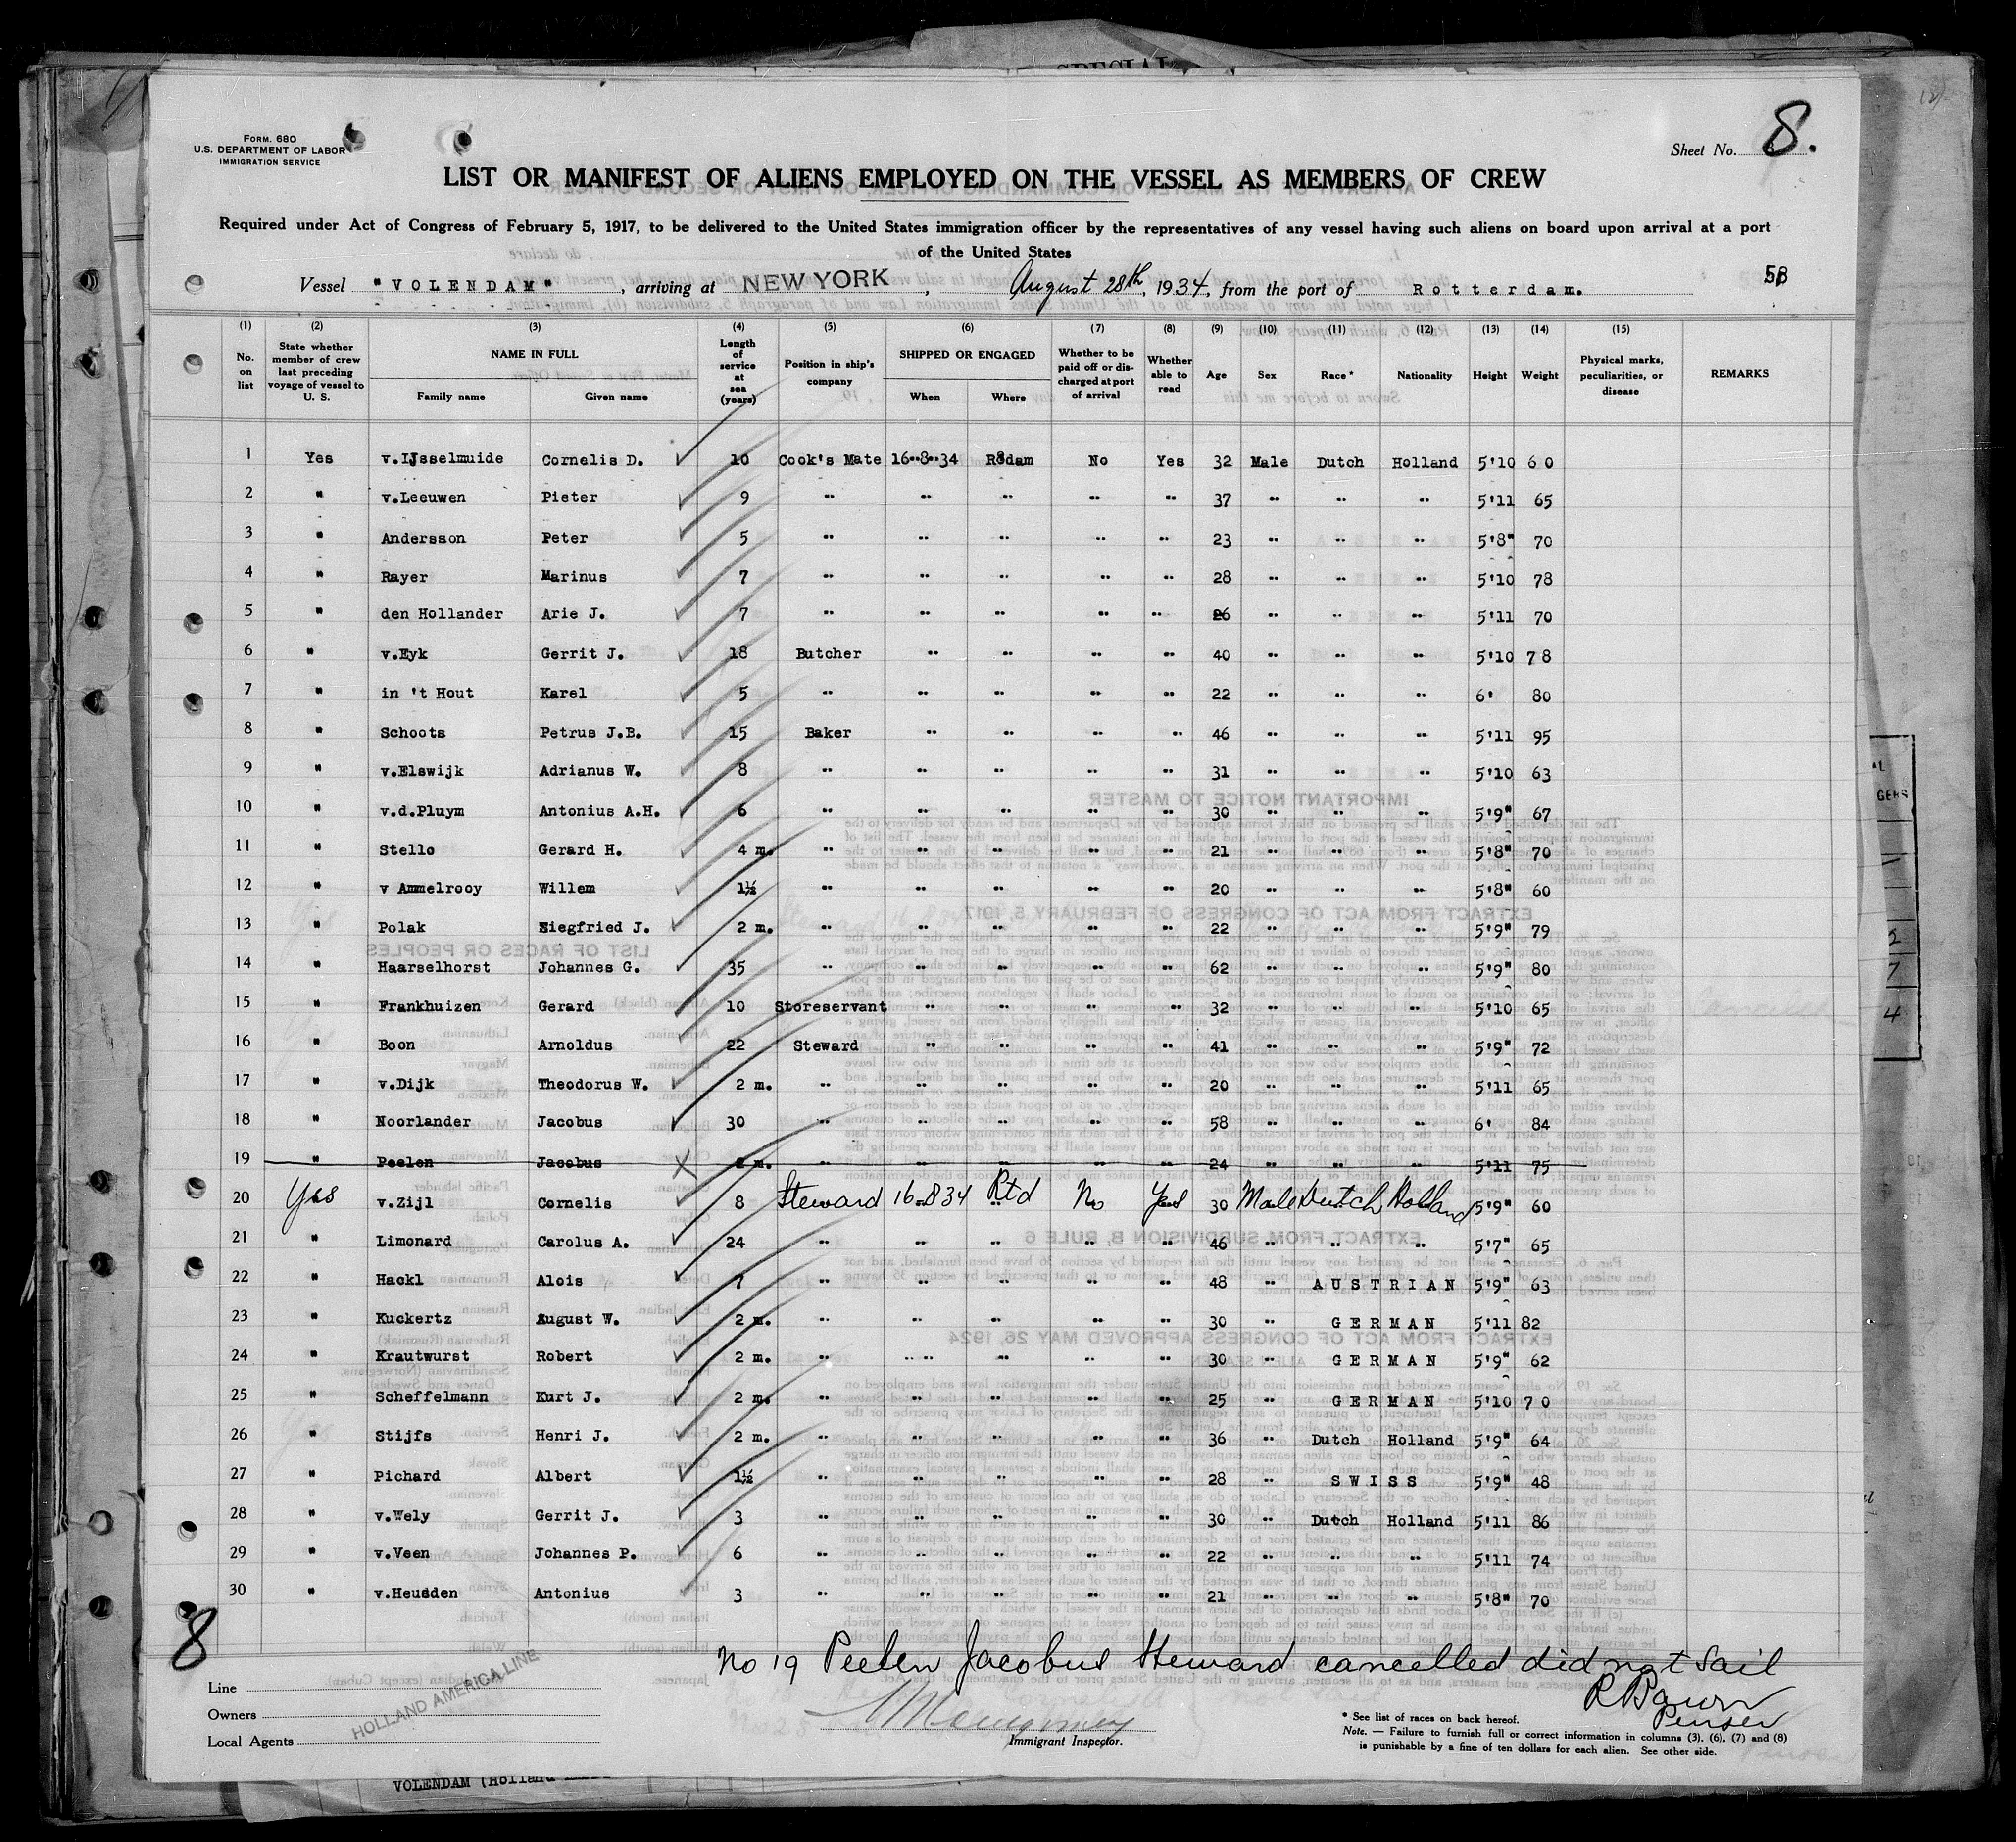 SPECIAL
FORM. 680
U.S. DEPARTMENT OF LABOR
IMMIGRATION SERVICE
Sheet No. 8.
LIST OR MANIFEST OF ALIENS EMPLOYED ON THE VESSEL AS MEMBERS OF CREW
Required under Act of Congress of February 5, 1917, to be delivered to the United States immigration officer by the representatives of any vessel having such aliens on board upon arrival at a port
of the United States
Vessel "VOLENDAM", arriving at NEW YORK, August 28th, 1934, from the port of Rotterdam.
(1) (2) (3) (4) (5) (6) (7) (8) (9) (10) (11) (12) (13) (14) (15)
No. on list State whether member of crew last preceding voyage of vessel to U. S. NAME IN FULL Family name Given name Length of service at sea (years) Position in ship's company SHIPPED OR ENGAGED When Where Whether to be paid off or discharged at port of arrival Whether able to read Age Sex Race * Nationality Height Weight Physical marks, peculiarities, or disease REMARKS
1 Yes v.IJsselmuide Cornelis D. 10 Cook's Mate 16-8-34 R8dam No Yes 32 Male Dutch Holland 5'10 60
2 " v.Leeuwen Pieter 9 " " " " " 37 " " " 5'11 65
3 " Andersson Peter 5 " " " " " 23 " " " 5'8" 70
4 " Rayer Marinus 7 " " " " " 28 " " " 5'10 78
5 " den Hollander Arie J. 7 " " " " " 26 " " " 5'11 70
6 " v.Eyk Gerrit J. 18 Butcher " " " " 40 " " " 5'10 78
7 " in 't Hout Karel 5 " " " " " 22 " " " 6' 80
8 " Schoots Petrus J.B. 15 Baker " " " " 46 " " " 5'11 95
9 " v.Elswijk Adrianus W. 8 " " " " " 31 " " " 5'10 63
10 " v.d.Pluym Antonius A.H. 6 " " " " " 30 " " " 5'9" 67
11 " Stello Gerard H. 4 m. " " " " " 21 " " " 5'8" 70
12 " v Ammelrooy Willem 1½ " " " " " 20 " " " 5'8" 60
13 " Polak Siegfried J. 2 m. " " " " " 22 " " " 5'9" 79
14 " Haarselhorst Johannes G. 35 " " " " " 62 " " " 5'9" 80
15 " Frankhuizen Gerard 10 Storeservant " " " " 32 " " " 5'10 65
16 " Boon Arnoldus 22 Steward " " " " 41 " " " 5'9" 72
17 " v.Dijk Theodorus W. 2 m. " " " " " 20 " " " 5'11 65
18 " Noorlander Jacobus 30 " " " " " 58 " " " 6' 84
19 " Peelen Jacobus 2 m. " " " " " 24 " " " 5'11 75
20 Yes v.Zijl Cornelis 8 Steward 16-8 34 Rtd No Yes 30 Male Dutch Holland 5'9" 60
21 " Limonard Carolus A. 24 " " " " " 46 " " " 5'7" 65
22 " Hackl Alois 7 " " " " " 48 " AUSTRIAN 5'9" 63
23 " Kuckertz August W. 2 m. " " " " " 30 " GERMAN 5'11 82
24 " Krautwurst Robert 2 m. " " " " " 30 " GERMAN 5'9" 62
25 " Scheffelmann Kurt J. 2 m. " " " " " 25 " GERMAN 5'10 70
26 " Stijfs Henri J. 2 m. " " " " " 36 " Dutch Holland 5'9" 64
27 " Pichard Albert 1½ " " " " " 28 " SWISS 5'9" 48
28 " v.Wely Gerrit J. 3 " " " " " 30 " Dutch Holland 5'11 86
29 " v.Veen Johannes P. 6 " " " " " 22 " " " 5'11 74
30 " v.Heusden Antonius 3 " " " " " 21 " " " 5'8" 70
8
No 19 Peelen Jacobus Steward cancelled did not sail
Purser
Line
Owners
Local Agents
HOLLAND AMERICA LINE
Immigrant Inspector.
* See list of races on back hereof.
Note. — Failure to furnish full or correct information in columns (3), (6), (7) and (8)
is punishable by a fine of ten dollars for each alien. See other side.